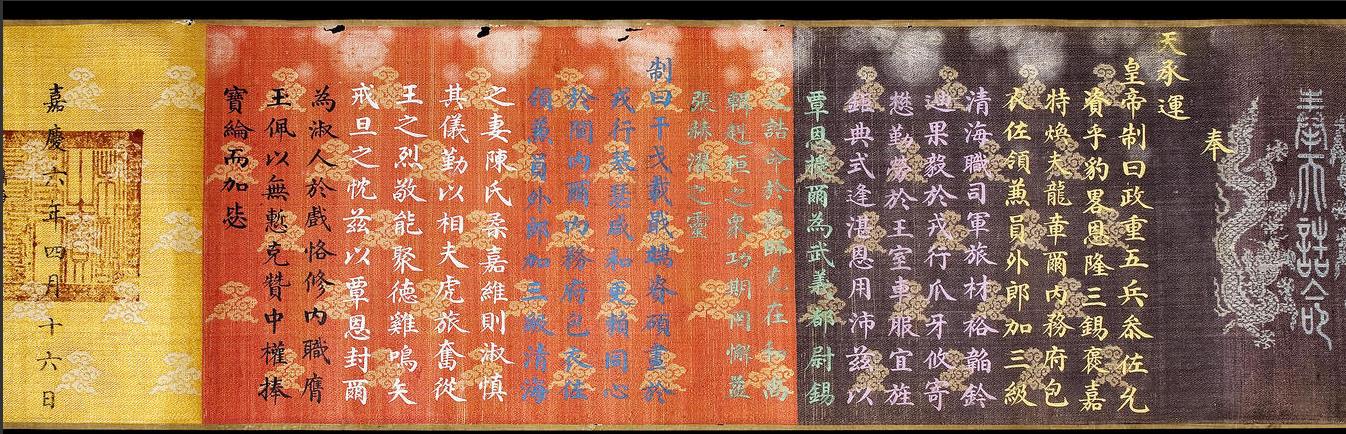 奉天誥命
奉
天承運
皇帝制曰政重五兵叅佐允
資乎豹畧恩隆三錫褒嘉
特煥夫龍章爾內務府包
衣佐領兼員外郎加三級
清海職司軍旅材裕韜鈐
迪果毅於戎行爪牙攸寄
懋勤勞於王室車服宜旌
鉅典式逢湛恩用沛茲以
覃恩授爾為武義都尉錫
之誥命於戲師克在和尚
輯赳桓之衆功期罔懈益
張赫濯之靈
制曰干戈載戢端資碩畫於
戎行琴瑟咸和更賴同心
於閫內爾內務府包衣佐
領兼員外郎加三級清海
之妻陳氏柔嘉維則淑慎
其儀勤以相夫虎旅奮從
王之烈敬能聚德雞鳴矢
戒旦之忱茲以覃恩封爾
為淑人於戲恪修內職膺
玉佩以無慙克贊中權捧
寶綸而加毖
嘉慶六年四月十六日